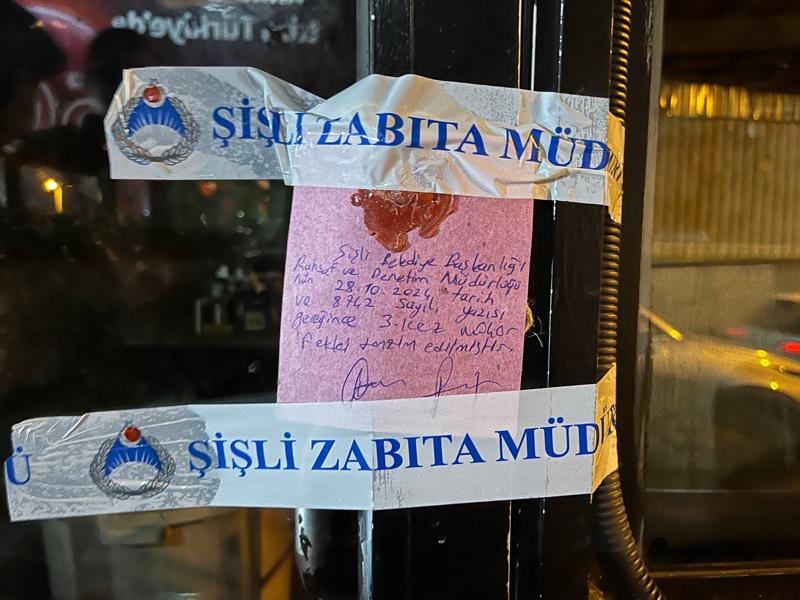 Türkiye'de
ŞİŞLİ ZABITA MÜD
Şişli Belediye Başkanlığı
Ruhsat ve Denetim Müdürlüğü
nün 28.10.2024 tarih
ve 8742 sayılı yazısı
gereğince 3. kez mühür
Fekki tanzim edilmiştir.
Ü
ŞİŞLİ ZABITA MÜDÜR